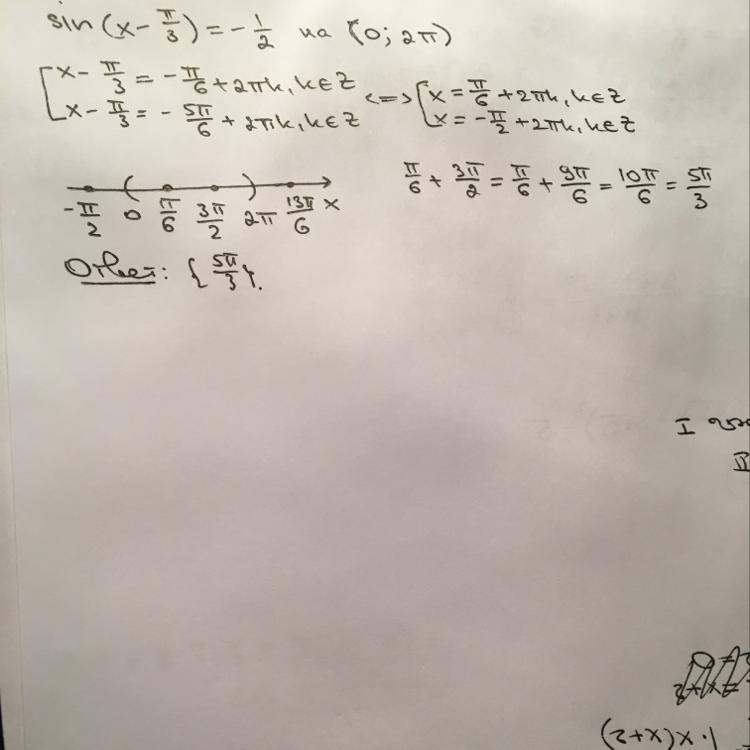 sin(x - π/3) = -1/2 на (0; 2π)
[ x - π/3 = -π/6 + 2πk, k∈Z
x - π/3 = -5π/6 + 2πk, k∈Z
<=> [ x = π/6 + 2πk, k∈Z
x = -π/2 + 2πk, k∈Z
-π/2 0 π/6 3π/2 2π 13π/6 x
π/6 + 3π/2 = π/6 + 9π/6 = 10π/6 = 5π/3
Ответ: {5π/3}.
I
II
1·x(x+2)